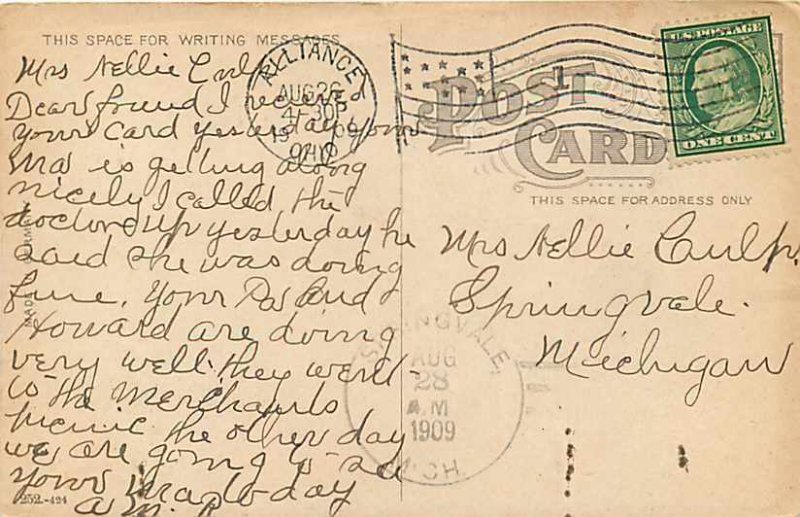 THIS SPACE FOR WRITING MESSAGES
Mrs Nellie Culp
Dear friend I recieved
your card yesterday your
ma is getting along
nicely I called the
doctor up yesterday he
said she was doing
fine. Your Pa and
Howard are doing
very well. they went
to the Merchants
Picnic the other day
we are going to see
your ma to day
A M R
252-424
ALLIANCE
AUG 26
4-30P
OHIO
POST
CARD
U.S. POSTAGE
ONE CENT
THIS SPACE FOR ADDRESS ONLY
Mrs Nellie Culp.
Springvale.
Michigan
SPRINGVALE,
AUG
28
A.M
1909
MICH.